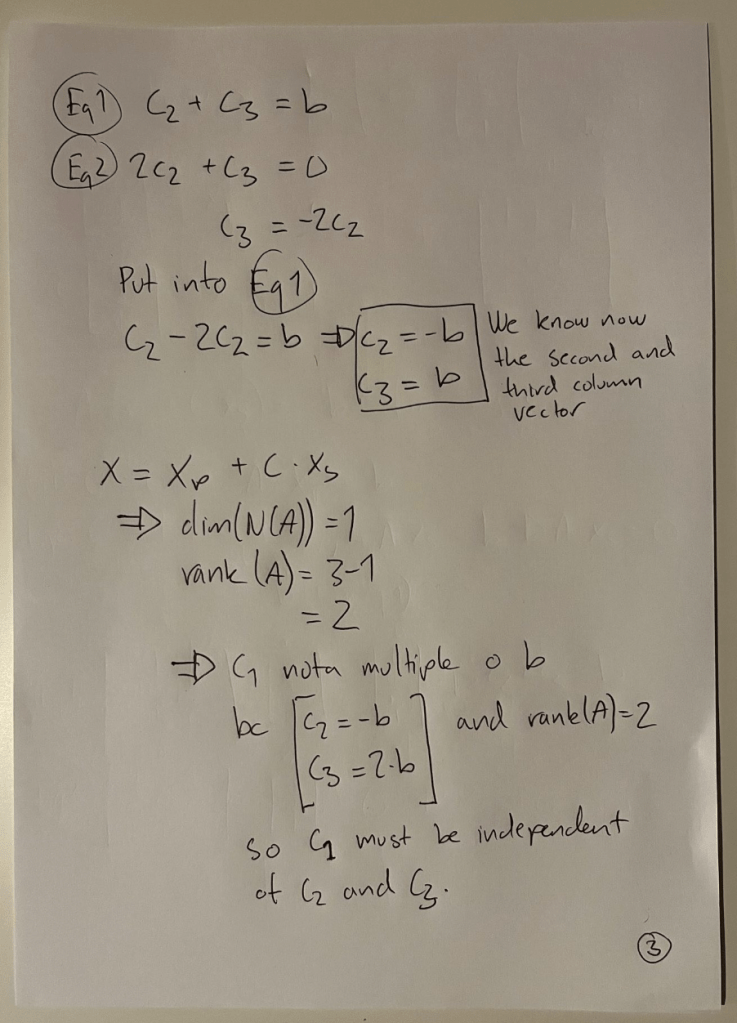 Eq1 C₂ + C₃ = b
Eq2 2C₂ + C₃ = 0
C₃ = -2C₂
Put into Eq1
C₂ - 2C₂ = b ⇒ C₂ = -b
C₃ = b
We know now
the second and
third column
vector
X = Xₚ + C · Xₛ
⇒ dim(N(A)) = 1
rank(A) = 3-1
= 2
⇒ C₁ not a multiple o b
bc [C₂ = -b and rank(A)=2
C₃ = 2·b]
so C₁ must be independent
of C₂ and C₃.
3